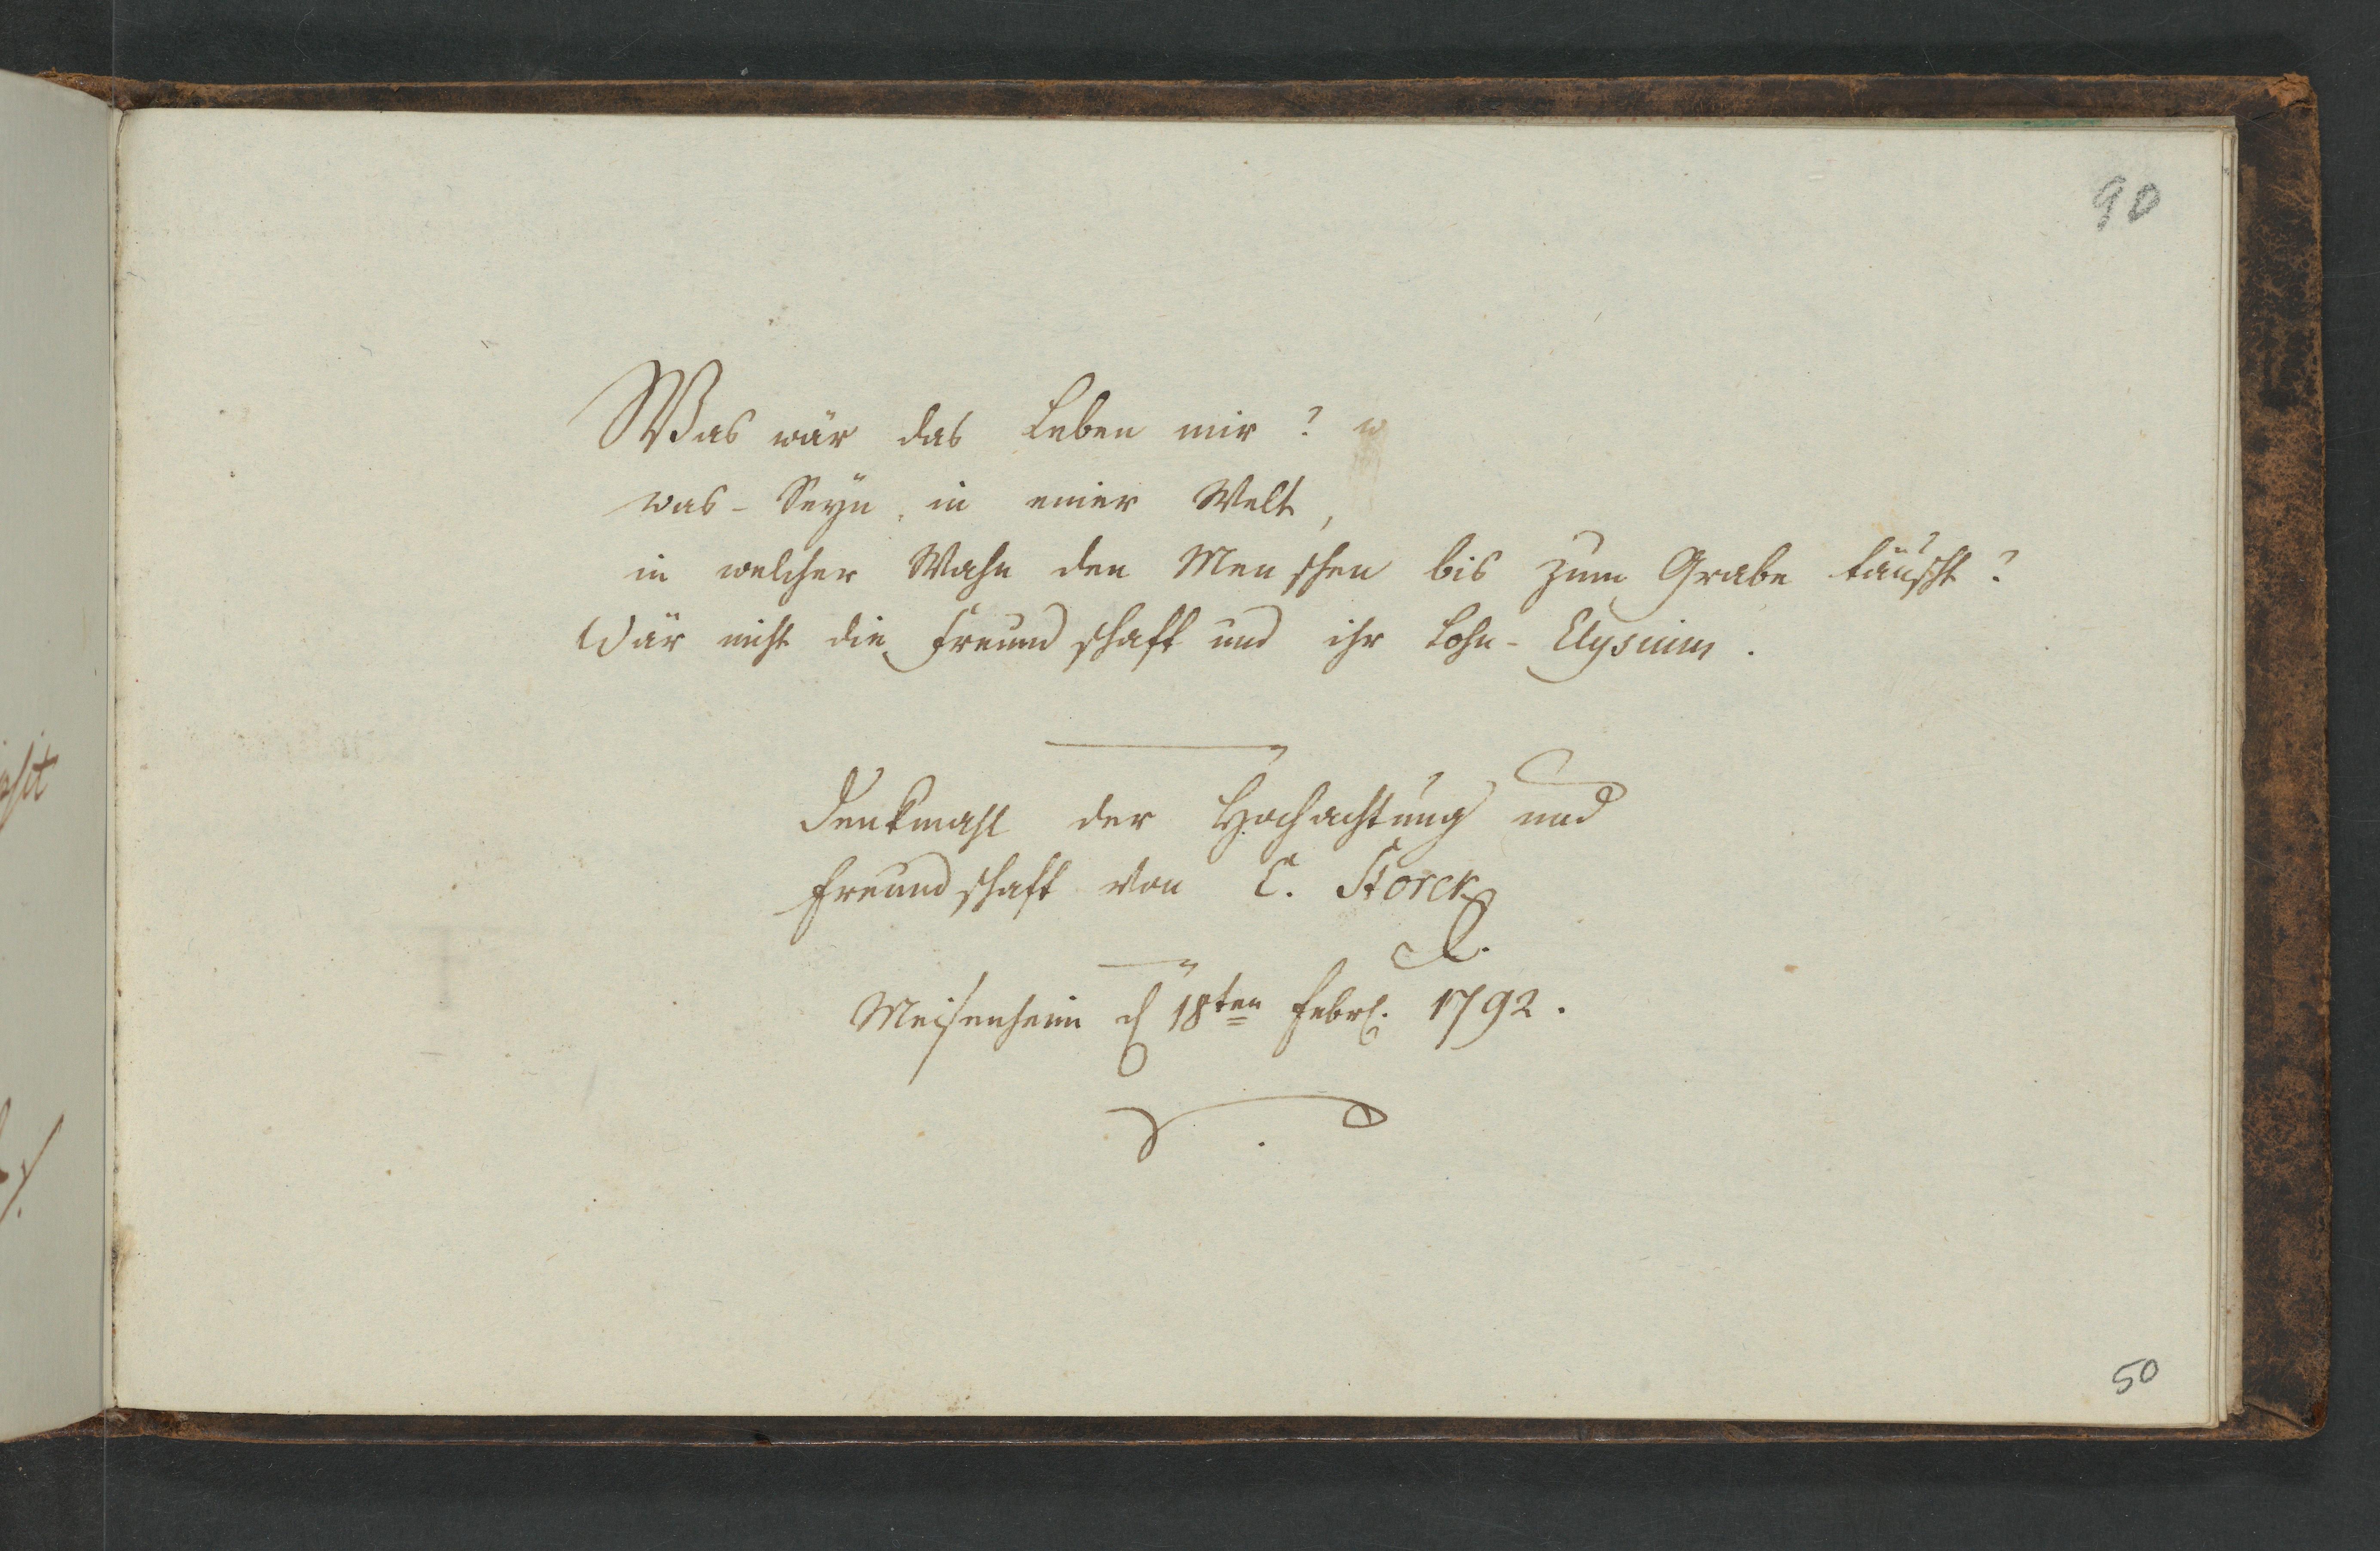 90
Was wär das Leben mir?
was - Seyn, in einer Welt,
in welcher Wahn den Menschen bis zum Grabe täuscht?
Wär nicht die Freundschaft und ihr Lohn - Elysium.
Denkmahl der Hochachtung und
Freundschaft von C. Storck
Meisenheim d 18ten Febr. 1792.
50